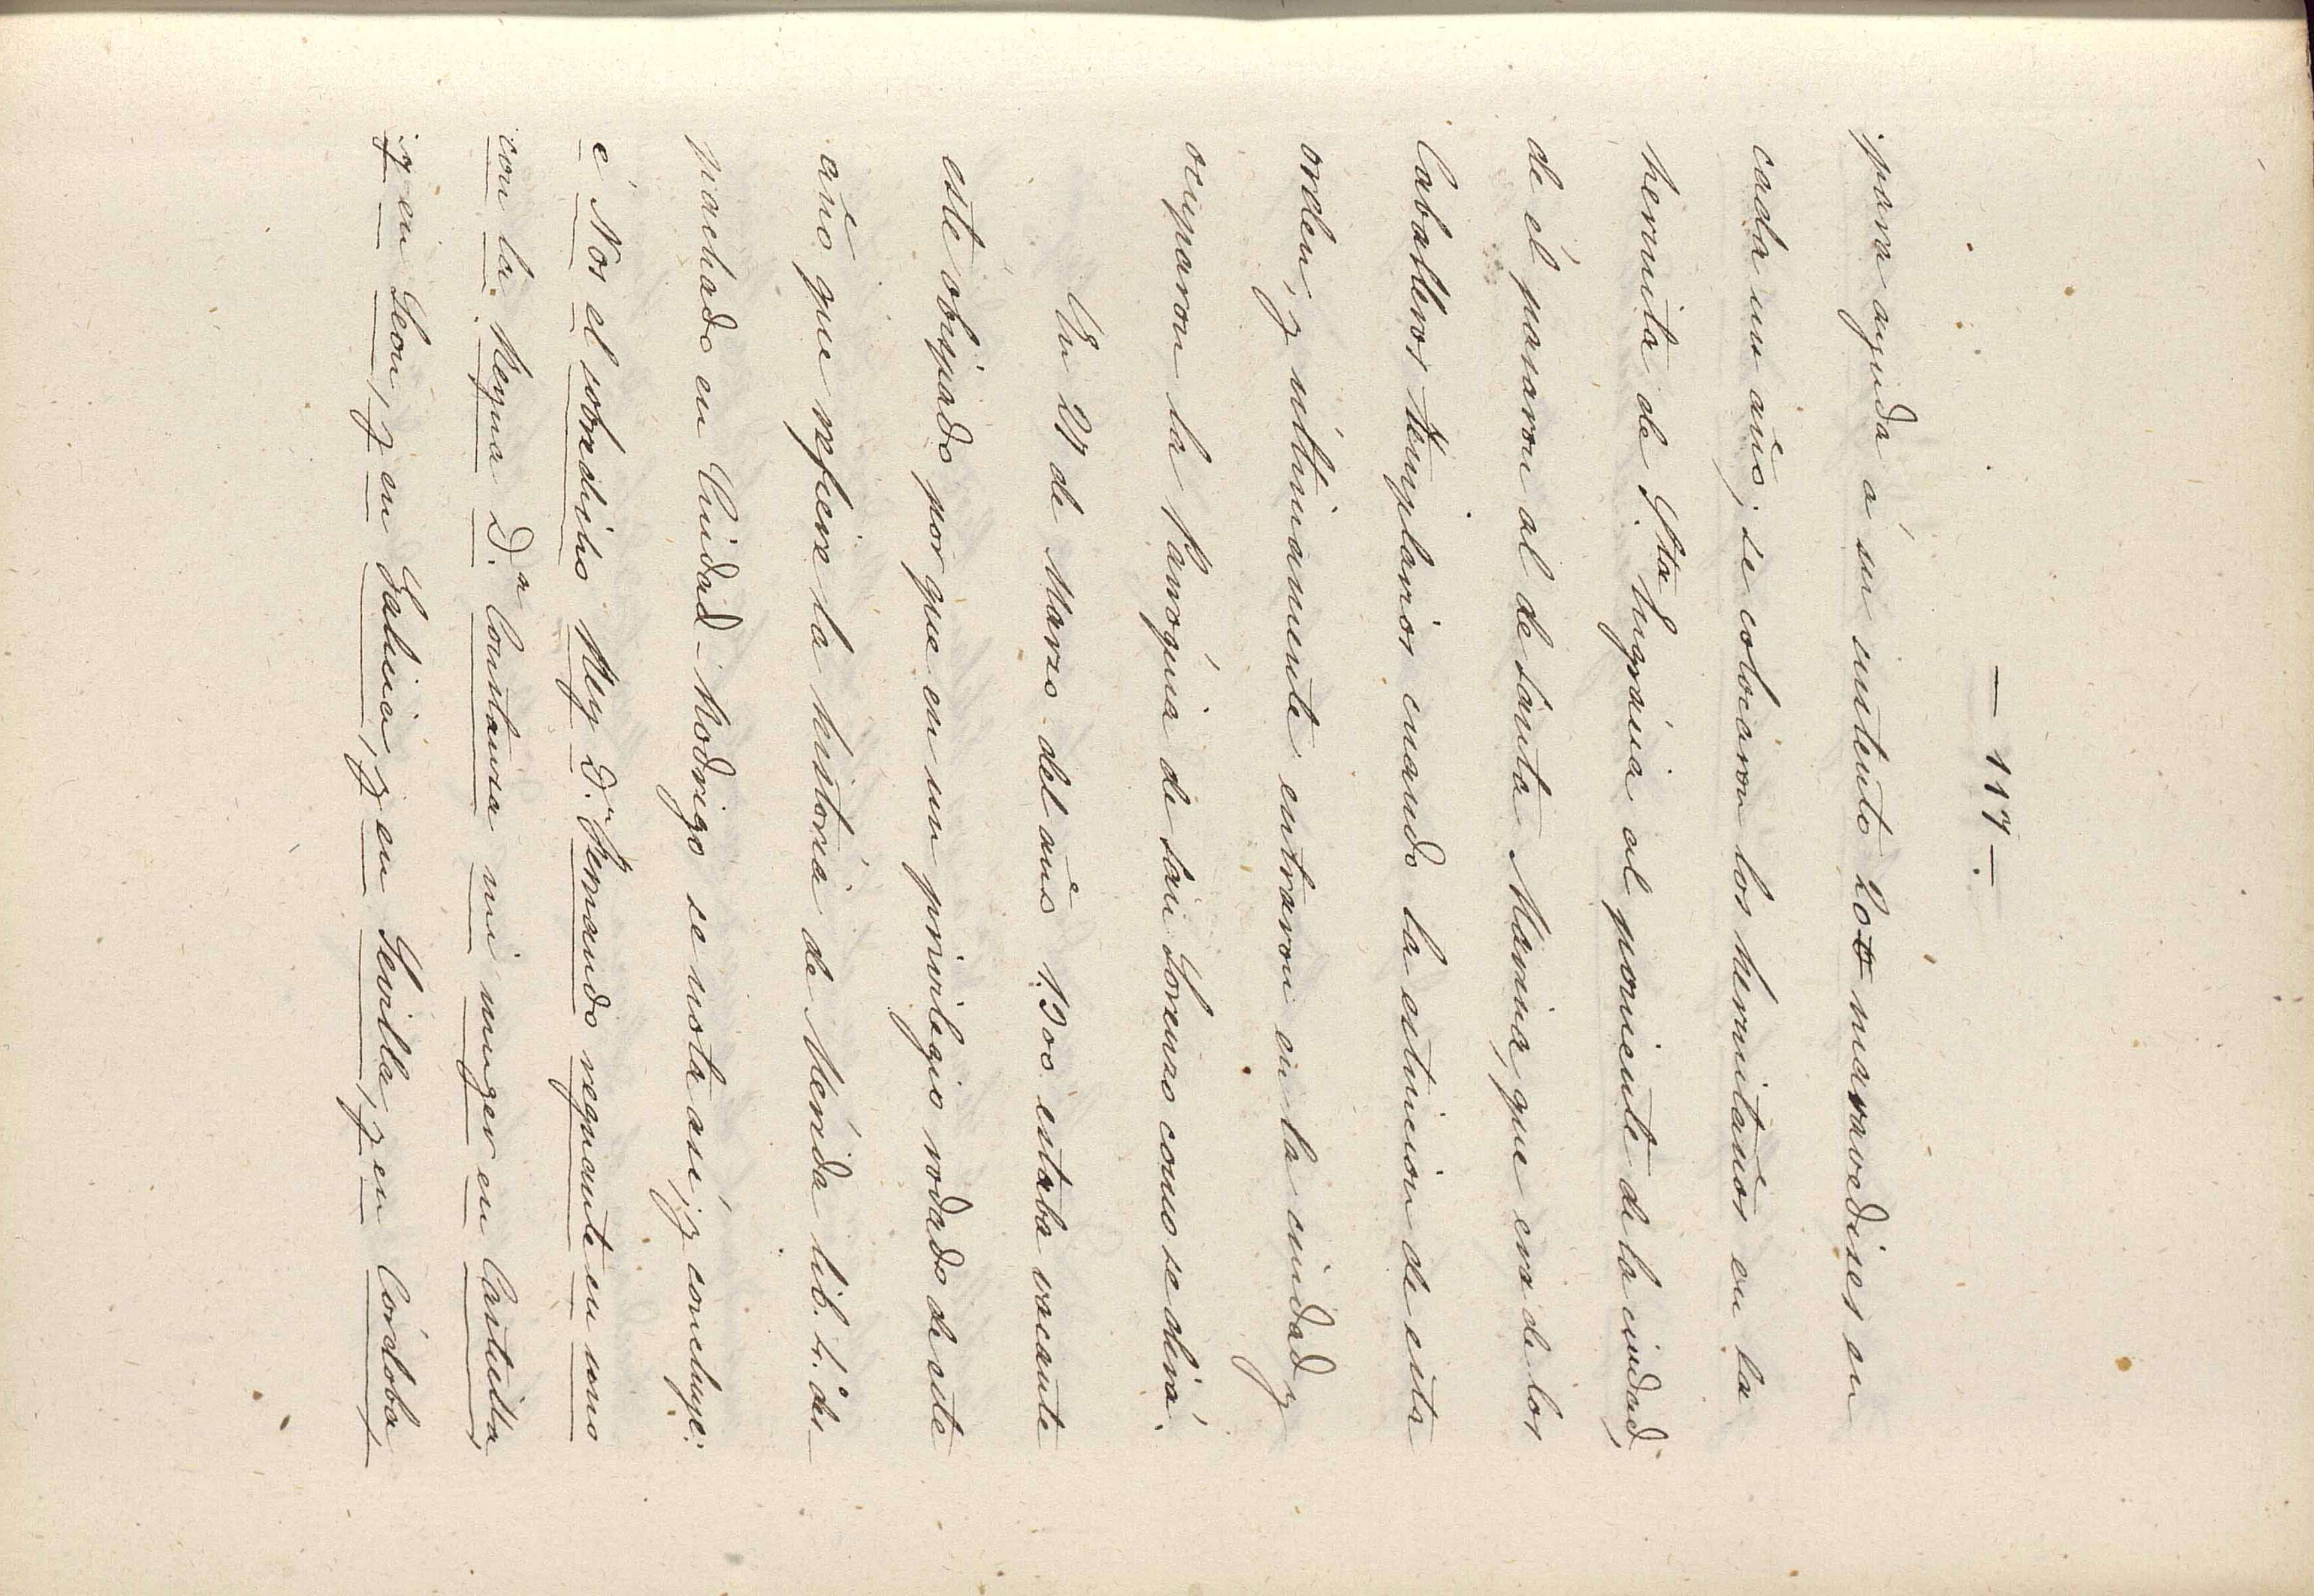 — 117 —
para ayuda á su sustento 20 maravedises en
cada un año; se colocaron los hermitaños en la
hermita de Sta. Engrácia al poniente de la ciudad,
de él pasaron al de Santa Marina, que era de los
Caballeros Templarios cuando la estincion de esta
orden, y ultimamente entraron en la ciudad y
ocuparon la Parróquia de San Lorenzo como se dirá.
En 27 de Marzo del año 1300 estaba vacante
este obispado por que en un privilegio rodado de este
año que refiere la história de Mérida lib. 4.º des-
pachado en Ciudad-Rodrigo se nota asi, y concluye:
é Nos el sobredicho Rey D.n Fernando regnante en uno
con la Reyna D.a Constanza mi muger en Castilla,
y en Leon, y en Galicia, y en Sevilla, y en Córdoba,